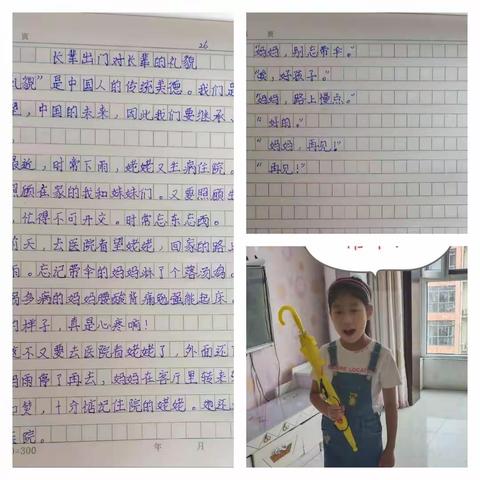 班
26
长辈出门对长辈的礼貌
礼貌”是中国人的传统美德。我们是
，中国的未来，因此我们要继承、
最近，时常下雨，姥姥又生病住院。
照顾在家的我和妹妹们。又要照顾
，忙得不可开交。时常忘东忘西。
前天，去医院看望姥姥，回家的路上
雨。忘记带伞的妈妈淋了个落汤鸡。
多病的妈妈腰酸背痛勉强能起床。
的样子，真是心疼啊！
不又要去医院看姥姥了，外面还
妈雨停了再去，妈妈在客厅里转来转
，十分惦记住院的姥姥。她还
医院。
=300
年 月
班
“妈妈，别忘带伞。”
“哦，好孩子。”
“妈妈，路上慢点。”
“好的。”
“妈妈，再见！”
“再见！”